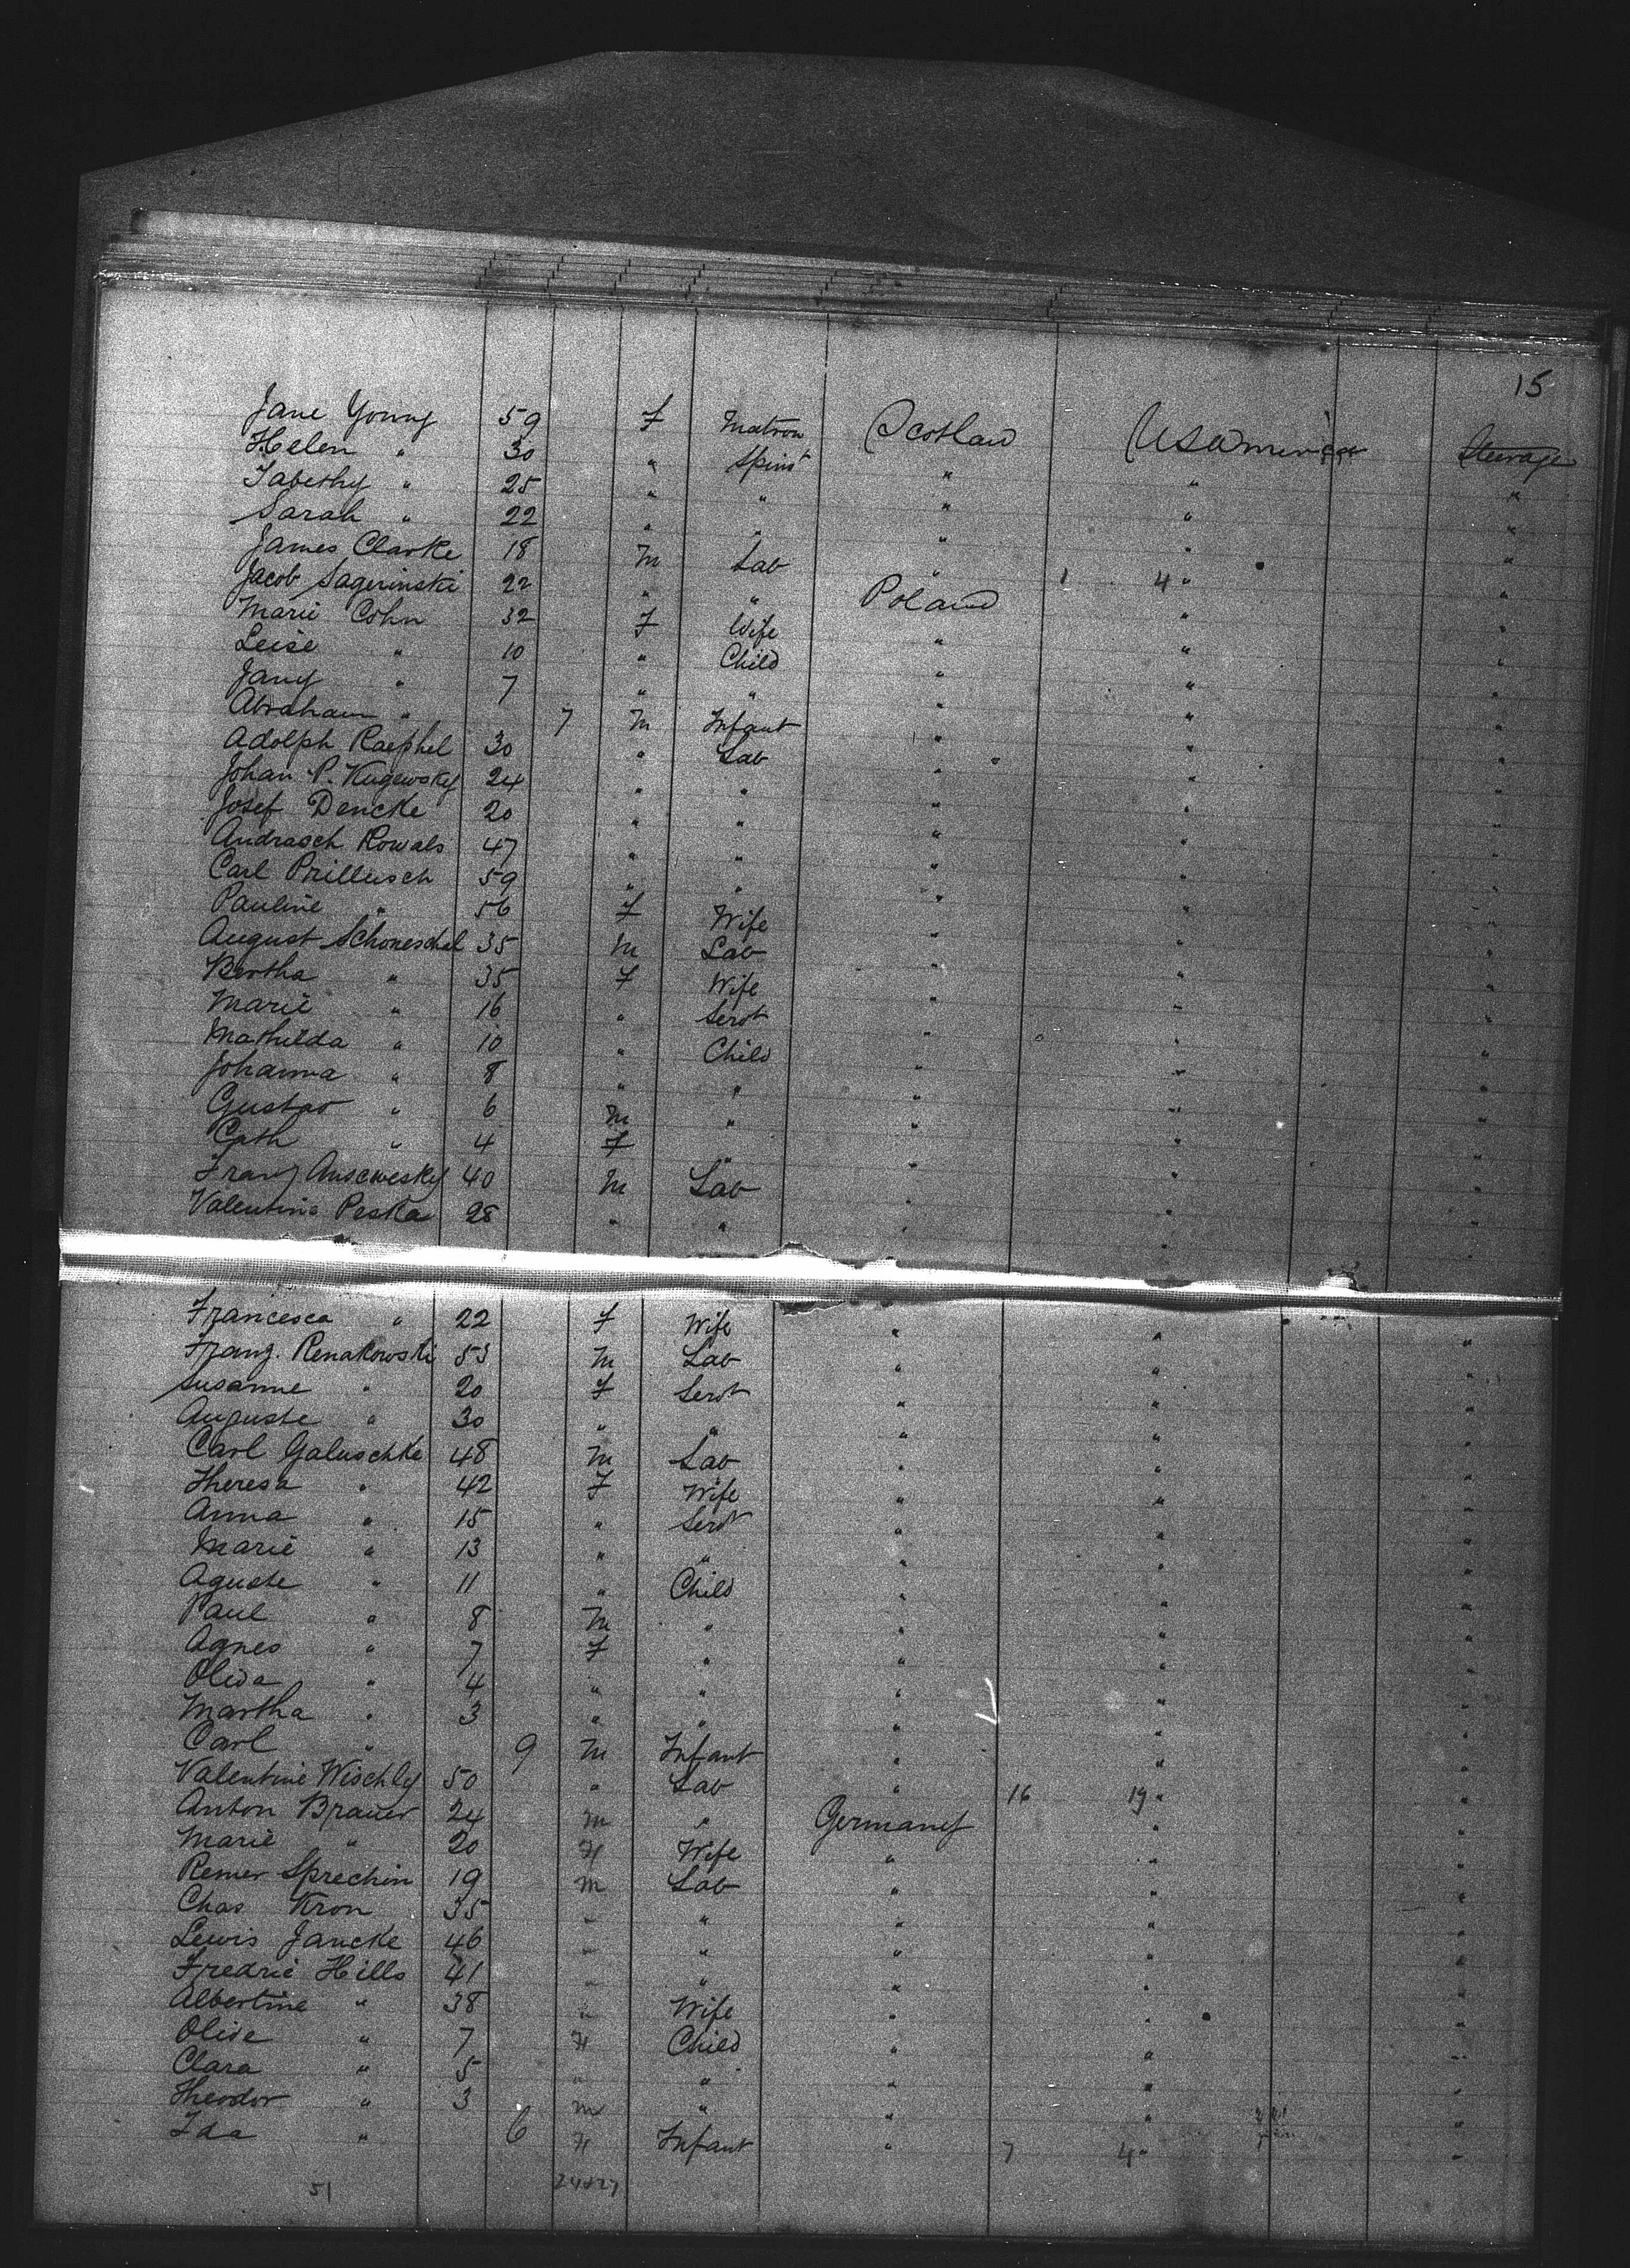 15
Jane Young 59 F Matron Scotland USAmerica Steerage
Helen " 30 " Spinst " " "
Tabethy " 25 " " " " "
Sarah " 22 " " " " "
James Clarke 18 M Lab " 1 4 " "
Jacob Sagerinski 22 " " Poland " "
Marie Cohn 32 F Wife " " "
Leise " 10 " Child " " "
Jany " 7 " " " " "
Abraham " 7 M Infant " " "
Adolph Raephel 30 " Lab " " "
Johan P. Kugewsky 24 " " " " "
Josef Dencke 20 " " " " "
Andrasch Kowals 47 " " " " "
Carl Prillusch 59 " " " " "
Pauline " 56 F Wife " " "
August Schoneschel 35 M Lab " " "
Bertha " 35 F Wife " " "
Marie " 16 " Servt " " "
Mathilda " 10 " Child " " "
Johanna " 8 " " " " "
Gustav " 6 M " " " "
Cath " 4 F " " " "
Franz Ansewesky 40 M Lab " " "
Valentine Peska 28 " " " " "
Francesca " 22 F Wife " " "
Franz. Renakowski 53 M Lab " " "
Susanne " 20 F Servt " " "
Auguste " 30 " " " " "
Carl Galuschke 48 M Lab " " "
Theresa " 42 F Wife " " "
Anna " 15 " Servt " " "
Marie " 13 " " " " "
Aguste " 11 " Child " " "
Paul " 8 M " " " "
Agnes " 7 F " " " "
Olida " 4 " " " " "
Martha " 3 " " " " "
Carl " 9 M Infant " " "
Valentine Wischly 50 " Lab " 16 19 " "
Anton Brauer 24 M " Germany " "
Marie " 20 F Wife " " "
Remer Sprechin 19 M Lab " " "
Chas Kron 35 " " " " "
Lewis Jancke 46 " " " " "
Fredric Hills 41 " " " " "
Albertine " 38 " Wife " " "
Olide " 7 F Child " " "
Clara " 5 " " " " "
Theodor " 3 M " " " "
Ida " 6 F Infant " 7 4 " "
51 24+27